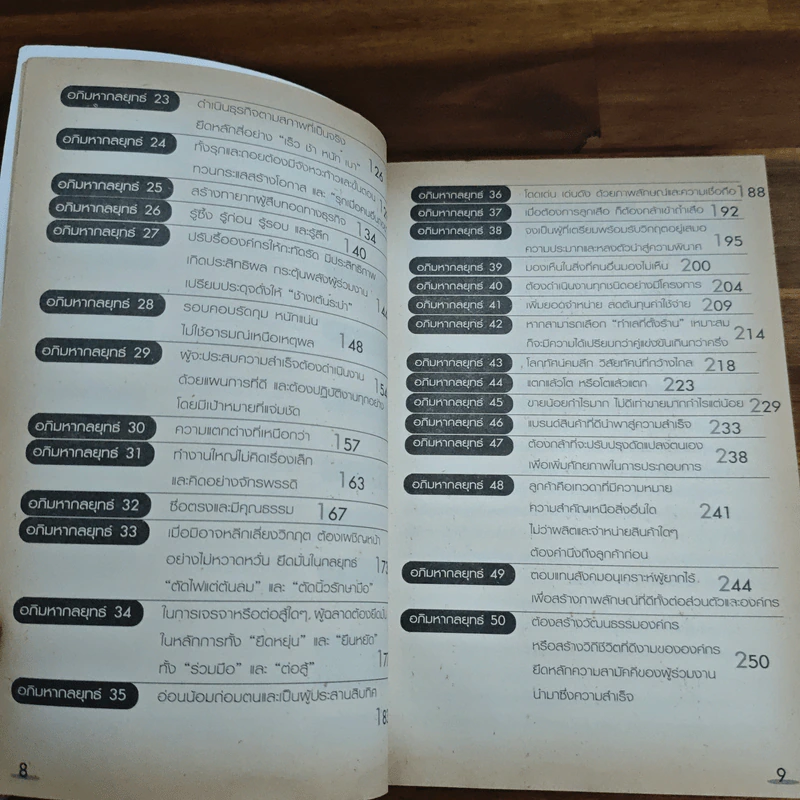 อภิมหากลยุทธ์ 23 ดำเนินธุรกิจตามสภาพที่เป็นจริง
ยึดหลักสี่อย่าง "เร็ว ช้า หนัก เบา" 126
อภิมหากลยุทธ์ 24 ทั้งรุกและถอยต้องมีจังหวะก้าวและขั้นตอน
ทวนกระแสสร้างโอกาส และ "รุกเมื่อคนอื่นถอย"
อภิมหากลยุทธ์ 25 สร้างทายาทผู้สืบทอดทางธุรกิจ 134
อภิมหากลยุทธ์ 26 รู้ซึ้ง รู้ก่อน รู้รอบ และรู้ลึก 140
อภิมหากลยุทธ์ 27 ปรับรื้อองค์กรให้กะทัดรัด มีประสิทธิภาพ
เกิดประสิทธิผล กระตุ้นพลังผู้ร่วมงาน
เปรียบประดุจดั่งให้ "ช้างเต้นระบำ" 144
อภิมหากลยุทธ์ 28 รอบคอบรัดกุม หนักแน่น
ไม่ใช้อารมณ์เหนือเหตุผล 148
อภิมหากลยุทธ์ 29 ผู้จะประสบความสำเร็จต้องดำเนินงาน
ด้วยแผนการที่ดี และต้องปฏิบัติงานทุกอย่าง 154
โดยมีเป้าหมายที่แจ่มชัด
อภิมหากลยุทธ์ 30 ความแตกต่างที่เหนือกว่า 157
อภิมหากลยุทธ์ 31 ทำงานใหญ่ไม่คิดเรื่องเล็ก
และคิดอย่างจักรพรรดิ 163
อภิมหากลยุทธ์ 32 ซื่อตรงและมีคุณธรรม 167
อภิมหากลยุทธ์ 33 เมื่อมิอาจหลีกเลี่ยงวิกฤต ต้องเผชิญหน้า
อย่างไม่หวาดหวั่น ยึดมั่นในกลยุทธ์ 173
"ตัดไฟแต่ต้นลม" และ "ตัดนิ้วรักษามือ"
อภิมหากลยุทธ์ 34 ในการเจรจาหรือต่อสู้ใดๆ, ผู้ฉลาดต้องยึดมั่น
ในหลักการทั้ง "ยืดหยุ่น" และ "ยืนหยัด"
ทั้ง "ร่วมมือ" และ "ต่อสู้"
อภิมหากลยุทธ์ 35 อ่อนน้อมถ่อมตนและเป็นผู้ประสานสิบทิศ
8
อภิมหากลยุทธ์ 36 โดดเด่น เด่นดัง ด้วยภาพลักษณ์และความเชื่อถือ 188
อภิมหากลยุทธ์ 37 เมื่อต้องการลูกเสือ ก็ต้องกล้าเข้าถ้ำเสือ 192
อภิมหากลยุทธ์ 38 จงเป็นผู้ที่เตรียมพร้อมรับวิกฤตอยู่เสมอ
ความประมาทและหลงตัวนำสู่ความพินาศ 195
อภิมหากลยุทธ์ 39 มองเห็นในสิ่งที่คนอื่นมองไม่เห็น 200
อภิมหากลยุทธ์ 40 ต้องดำเนินงานทุกชนิดอย่างมีโครงการ 204
อภิมหากลยุทธ์ 41 เพิ่มยอดจำหน่าย ลดต้นทุนค่าใช้จ่าย 209
อภิมหากลยุทธ์ 42 หากสามารถเลือก "ทำเลที่ตั้งร้าน" เหมาะสม
ก็จะมีความได้เปรียบกว่าคู่แข่งขันเกินกว่าครึ่ง 214
อภิมหากลยุทธ์ 43 โลกทัศน์คมลึก วิสัยทัศน์ที่กว้างไกล 218
อภิมหากลยุทธ์ 44 แตกแล้วโต หรือโตแล้วแตก 223
อภิมหากลยุทธ์ 45 ขายน้อยกำไรมาก ไม่ดีเท่าขายมากกำไรแต่น้อย 229
อภิมหากลยุทธ์ 46 แบรนด์สินค้าที่ดีนำพาสู่ความสำเร็จ 233
อภิมหากลยุทธ์ 47 ต้องกล้าที่จะปรับปรุงดัดแปลงตนเอง
เพื่อเพิ่มศักยภาพในการประกอบการ 238
อภิมหากลยุทธ์ 48 ลูกค้าคือเทวดาที่มีความหมาย
ความสำคัญเหนือสิ่งอื่นใด 241
ไม่ว่าผลิตและจำหน่ายสินค้าใดๆ
ต้องคำนึงถึงลูกค้าก่อน
อภิมหากลยุทธ์ 49 ตอบแทนสังคมอนุเคราะห์ผู้ยากไร้ 244
เพื่อสร้างภาพลักษณ์ที่ดีทั้งต่อส่วนตัวและองค์กร
อภิมหากลยุทธ์ 50 ต้องสร้างวัฒนธรรมองค์กร
หรือสร้างวิถีชีวิตที่ดีงามขององค์กร 250
ยึดหลักความสามัคคีของผู้ร่วมงาน
นำมาซึ่งความสำเร็จ
9